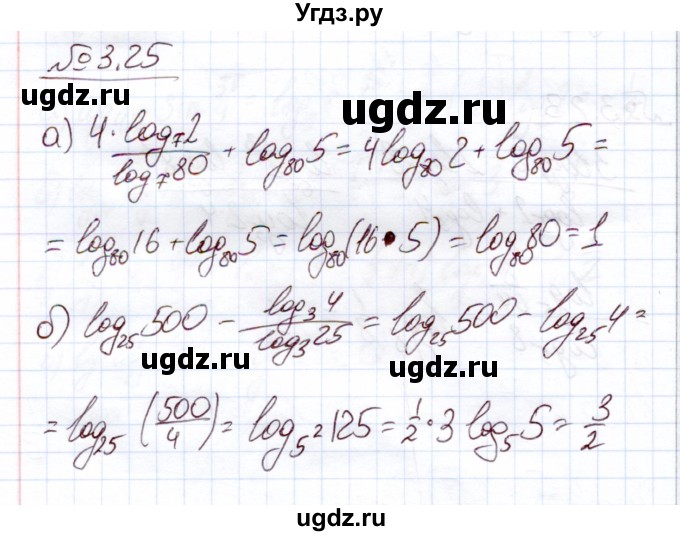 Угдз.ру
№3.25
ugdz.ru
ugdz.ru
а) 4·log₇2/log₇80 + log₈₀5 = 4log₈₀2 + log₈₀5 =
= log₈₀16 + log₈₀5 = log₈₀(16·5) = log₈₀80 = 1
ugdz.ru
б) log₂₅500 − log₃4/log₃25 = log₂₅500 − log₂₅4 =
ugdz.ru
ugdz.ru
= log₂₅(500/4) = log₅²125 = 1/2·3 log₅5 = 3/2
ugdz.ru
ugdz.ru
ugdz.ru